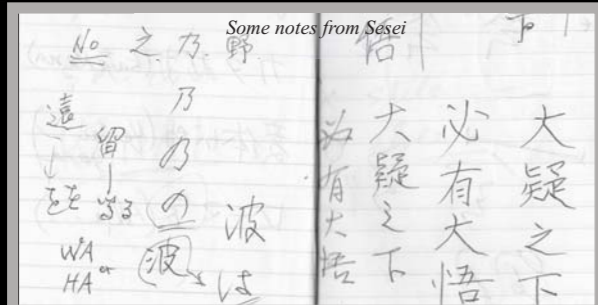 Some notes from Sesei
No 之 乃 野
乃
乃
の
遠
を を
留
る る
波
は
WA or
HA
波
悟
下
大疑之下
必有大悟
大疑之下
必有大悟